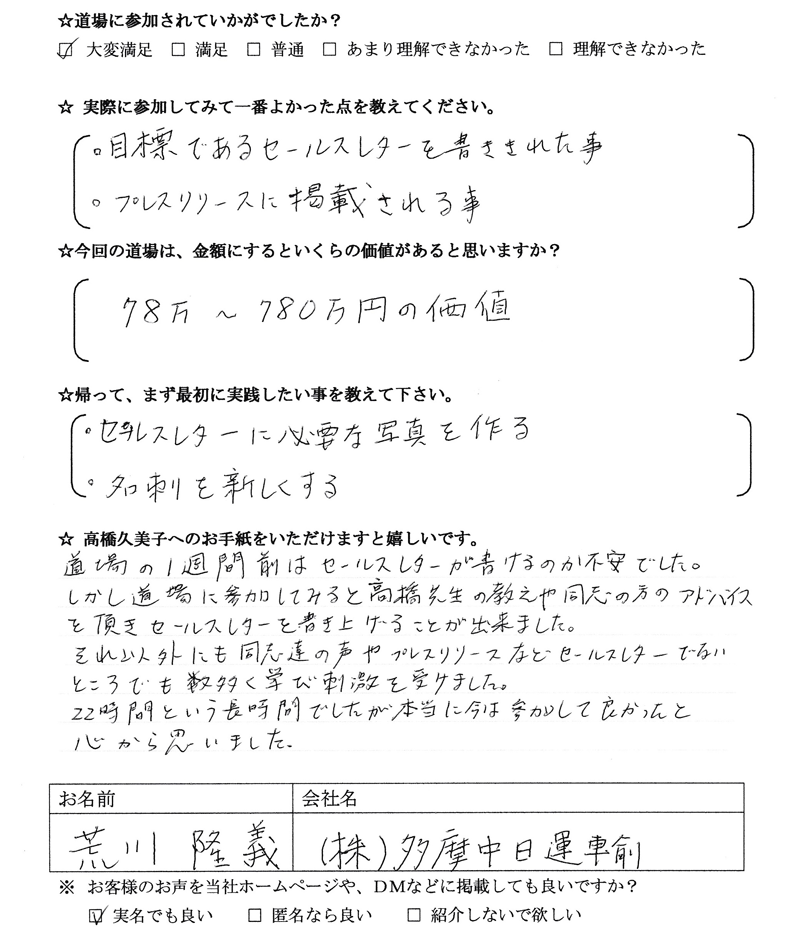 ☆道場に参加されていかがでしたか？
☑ 大変満足 □ 満足 □ 普通 □ あまり理解できなかった □ 理解できなかった
☆ 実際に参加してみて一番よかった点を教えてください。
。目標であるセールスレターを書ききれた事
。プレスリリースに掲載される事
☆今回の道場は、金額にするといくらの価値があると思いますか？
78万～780万円の価値
☆帰って、まず最初に実践したい事を教えて下さい。
・セールスレターに必要な写真を作る
・名刺を新しくする
☆ 高橋久美子へのお手紙をいただけますと嬉しいです。
道場の1週間前はセールスレターが書けるのか不安でした。
しかし道場に参加してみると高橋先生の教えや同志の方のアドバイス
を頂きセールスレターを書き上げることが出来ました。
それ以外にも同志達の声やプレスリリースなどセールスレターでない
ところでも数多く学び刺激を受けました。
22時間という長時間でしたが本当に今は参加して良かったと
心から思いました。
お名前 会社名
荒川 隆義 (株)多摩中日運輸
※ お客様のお声を当社ホームページや、DMなどに掲載しても良いですか？
☑ 実名でも良い □ 匿名なら良い □ 紹介しないで欲しい